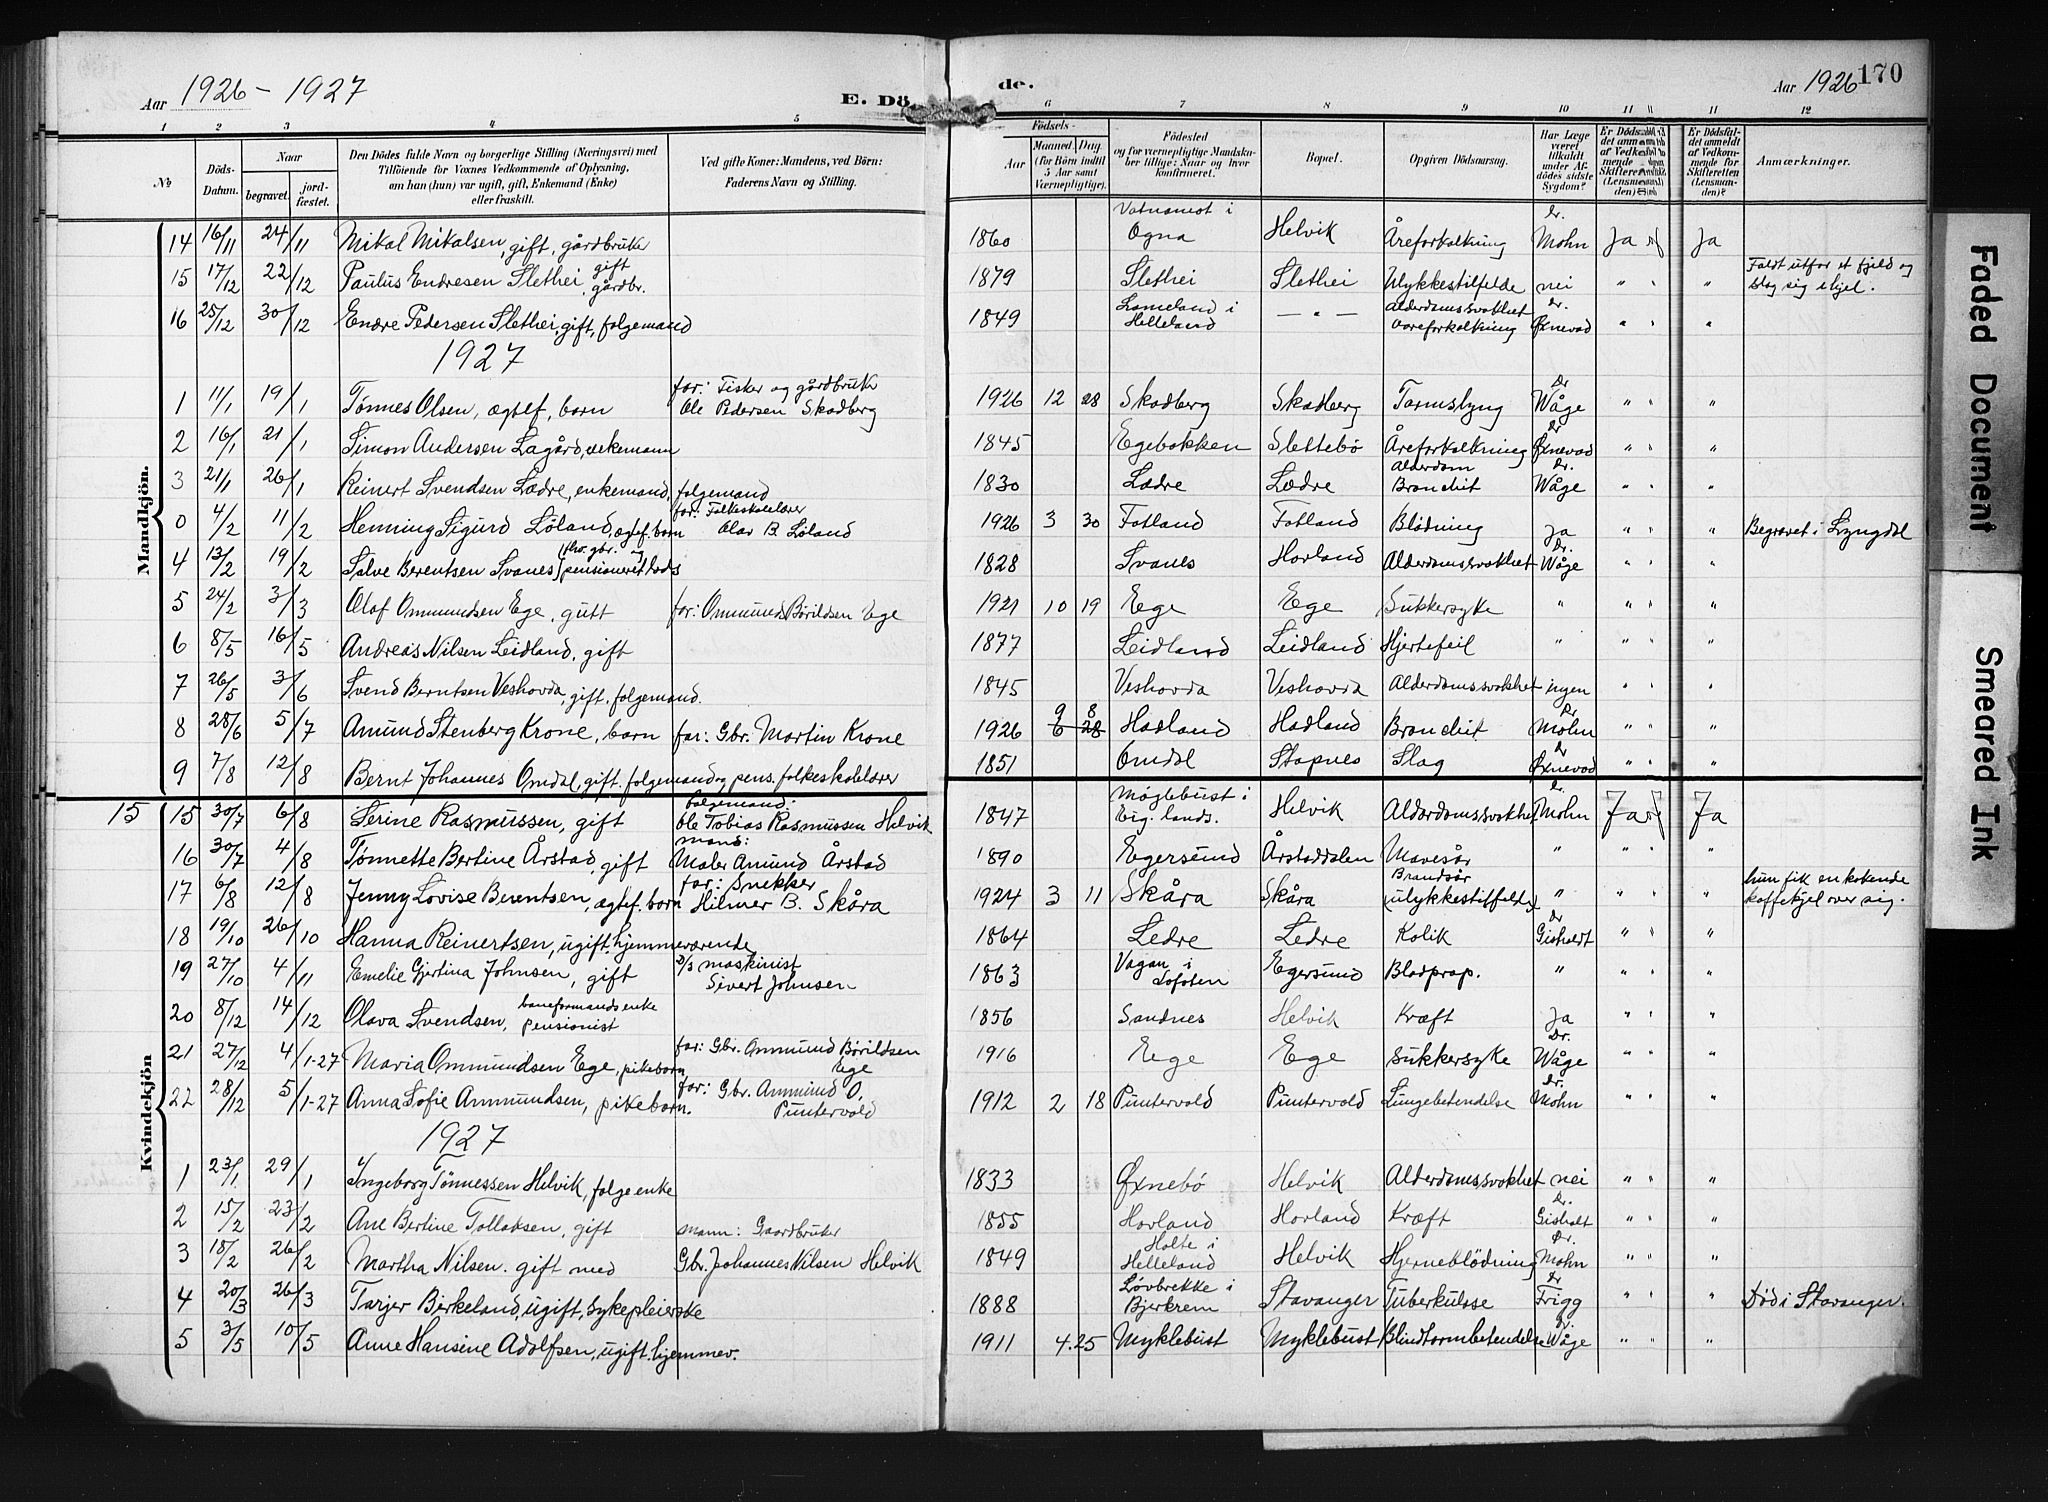 Aar 1926-1927
E. Dö de.
Aar 1926 170
1 2 3 4 5 6 7 8 9 10 11 11 11 12
No Döds-Datum. Naar begravet. jord-fæstet. Den Dödes fulde Navn og borgerlige Stilling (Næringsvei) med Tilföiende för Voxnes Vedkommende af Oplysning, om han (hun) var ugift, gift, Enkemand (Enke) eller fraskilt. Ved gifte Koner: Mandens, ved Börn: Faderens Navn og Stilling. Födsels- Aar Maaned. Dag. (for Börn indtil 5 Aar samt Værnepligtige). Födested og for værnepligtige Mandskaber tillige: Naar og hvor konfirmeret. Bopæl. Opgiven Dödsaarsag. Har Læge været tilkaldt under Afdödes sidste Sygdom? Er Dödsfaldet anmeldt af Vedkommende for Skifteretten (Lensmanden)? Anmærkninger.
Mandkjön.
14 16/11 24/11 Mikal Mikalsen, gift, gårdbruker 1860 Vatnamot i Ogna Helvik Åreforkalkning Dr. Mohn Ja Ja
15 17/12 22/12 Paulus Endresen Slethei, gift gårdbr. 1879 Slethei Slethei Ulykkestilfelde nei " " " Faldt utfor et fjeld og slog sig ihjel.
16 25/12 30/12 Endre Pedersen Slethei, gift, folgemand 1849 Lomeland i Helleland — " — Alderdomssvakhet Aareforkalkning Dr. Øxnevad " " "
1927
1 11/1 19/1 Tønnes Olsen, ægtef. barn far: Fisker og gårdbruk Ole Pedersen Skadberg 1926 12 28 Skadberg Skadberg Tarmslyng Dr Wåge " " "
2 16/1 21/1 Simon Andersen Lagård, enkemann 1845 Egebakken Slettebø Åreforkalkning Dr Øxnevad " " "
3 21/1 26/1 Reinert Svendsen Lædre, enkemand, folgemand 1830 Lædre Lædre Alderdom Bronchit Dr. Wåge " " "
0 4/2 11/2 Henning Sigurd Løland, ægtef. barn far: Folkeskolelærer Olav B. Løland 1926 3 30 Fotland Fotland Blødning Ja " " " Begravet i Lyngdal
4 13/2 19/2 Salve Berentsen Svanes (fhv. gbr. og pensioneret lods 1828 Svanes Hovland Alderdomssvakhet Dr. Wåge " " "
5 24/2 3/3 Olaf Ommundsen Ege, gutt far: Ommund Børildsen Ege 1921 10 19 Ege Ege Sukkersyke " " " "
6 8/5 16/5 Andreas Nilsen Leidland, gift 1877 Leidland Leidland Hjertefeil " " " "
7 26/5 3/6 Svend Berntsen Veshovda, gift. folgemand. 1845 Veshovda Veshovda Alderdomssvakhet ingen " " "
8 28/6 5/7 Amund Stenberg Krone, barn far: Gbr. Martin Krone 1926 9 8 6 28 Hadland Hadland Bronchit Dr Mohn " " "
9 7/8 12/8 Bernt Johannes Omdal, gift. folgemand og pens. folkeskolelærer 1851 Omdal Stapnes Slag Dr Øxnevad " " "
Kvindekjön
15 15 30/7 6/8 Serine Rasmussen, gift folgemand: Ole Tobias Rasmussen Helvik 1847 Møglebust i Eig. lands. Helvik Alderdomssvakhet Dr. Mohn Ja Ja
16 30/7 4/8 Tønnette Bertine Årstad, gift mand: Maler Amund Årstad 1890 Egersund Årstaddalen Mavesår " " " "
17 6/8 12/8 Jenny Lovise Berentsen, ægtef. barn far: Snekker Hilmer B. Skåra 1924 3 11 Skåra Skåra Brandsår (ulykkestilfelde) " " " " hun fik en kokende kaffekjel over sig.
18 19/10 26/10 Hanna Reinertsen, ugift, hjemmeværende 1864 Ledre Ledre Kolik Dr Gisholdt " " "
19 27/10 4/11 Emelie Gjertina Johnsen, gift D/S maskinist Sivert Johnsen 1863 Vagan i Lofoten Egersund Blodprop. " " " "
20 8/12 14/12 Olava Svendsen, baneformands enke pensionist 1856 Sandnes Helvik Kræft Ja " " "
21 27/12 4/1-27 Maria Ommundsen Ege, pikebarn, far: Gbr. Ommund Børildsen Ege 1916 Ege Ege Sukkersyke Dr. Wåge " " "
22 28/12 5/1-27 Anna Sofie Ammundsen, pikebarn. far: Gbr. Ammund O. Puntervold 1912 2 18 Puntervold Puntervold Lungebetendelse Dr. Mohn " " "
1927
1 23/1 29/1 Ingeborg Tønnessen Helvik, folgeenke 1833 Øxnebø Helvik Alderdomssvakhet nei " " "
2 15/2 23/2 Ane Bertine Tollaksen, gift mann: Gaardbruker 1855 Hovland Hovland Kræft Dr. Gisholt " " "
3 18/2 26/2 Martha Nilsen. gift med Gbr. Johannes Nilsen Helvik 1849 Holte i Helleland Helvik Hjerneblödning Dr. Mohn " " "
4 20/3 26/3 Tarjer Birkeland, ugift, sykepleierske 1888 Løvbrekke i Bjerkrem Stavanger Tuberkulose Dr Frigg " " " Död i Stavanger.
5 3/5 10/5 Anne Hansine Adolfsen, ugift. hjemmev. 1911 4. 25 Myklebust Myklebust Blindtarmbetendelse Dr. Wåge " " "
Faded Document
Smeared Ink